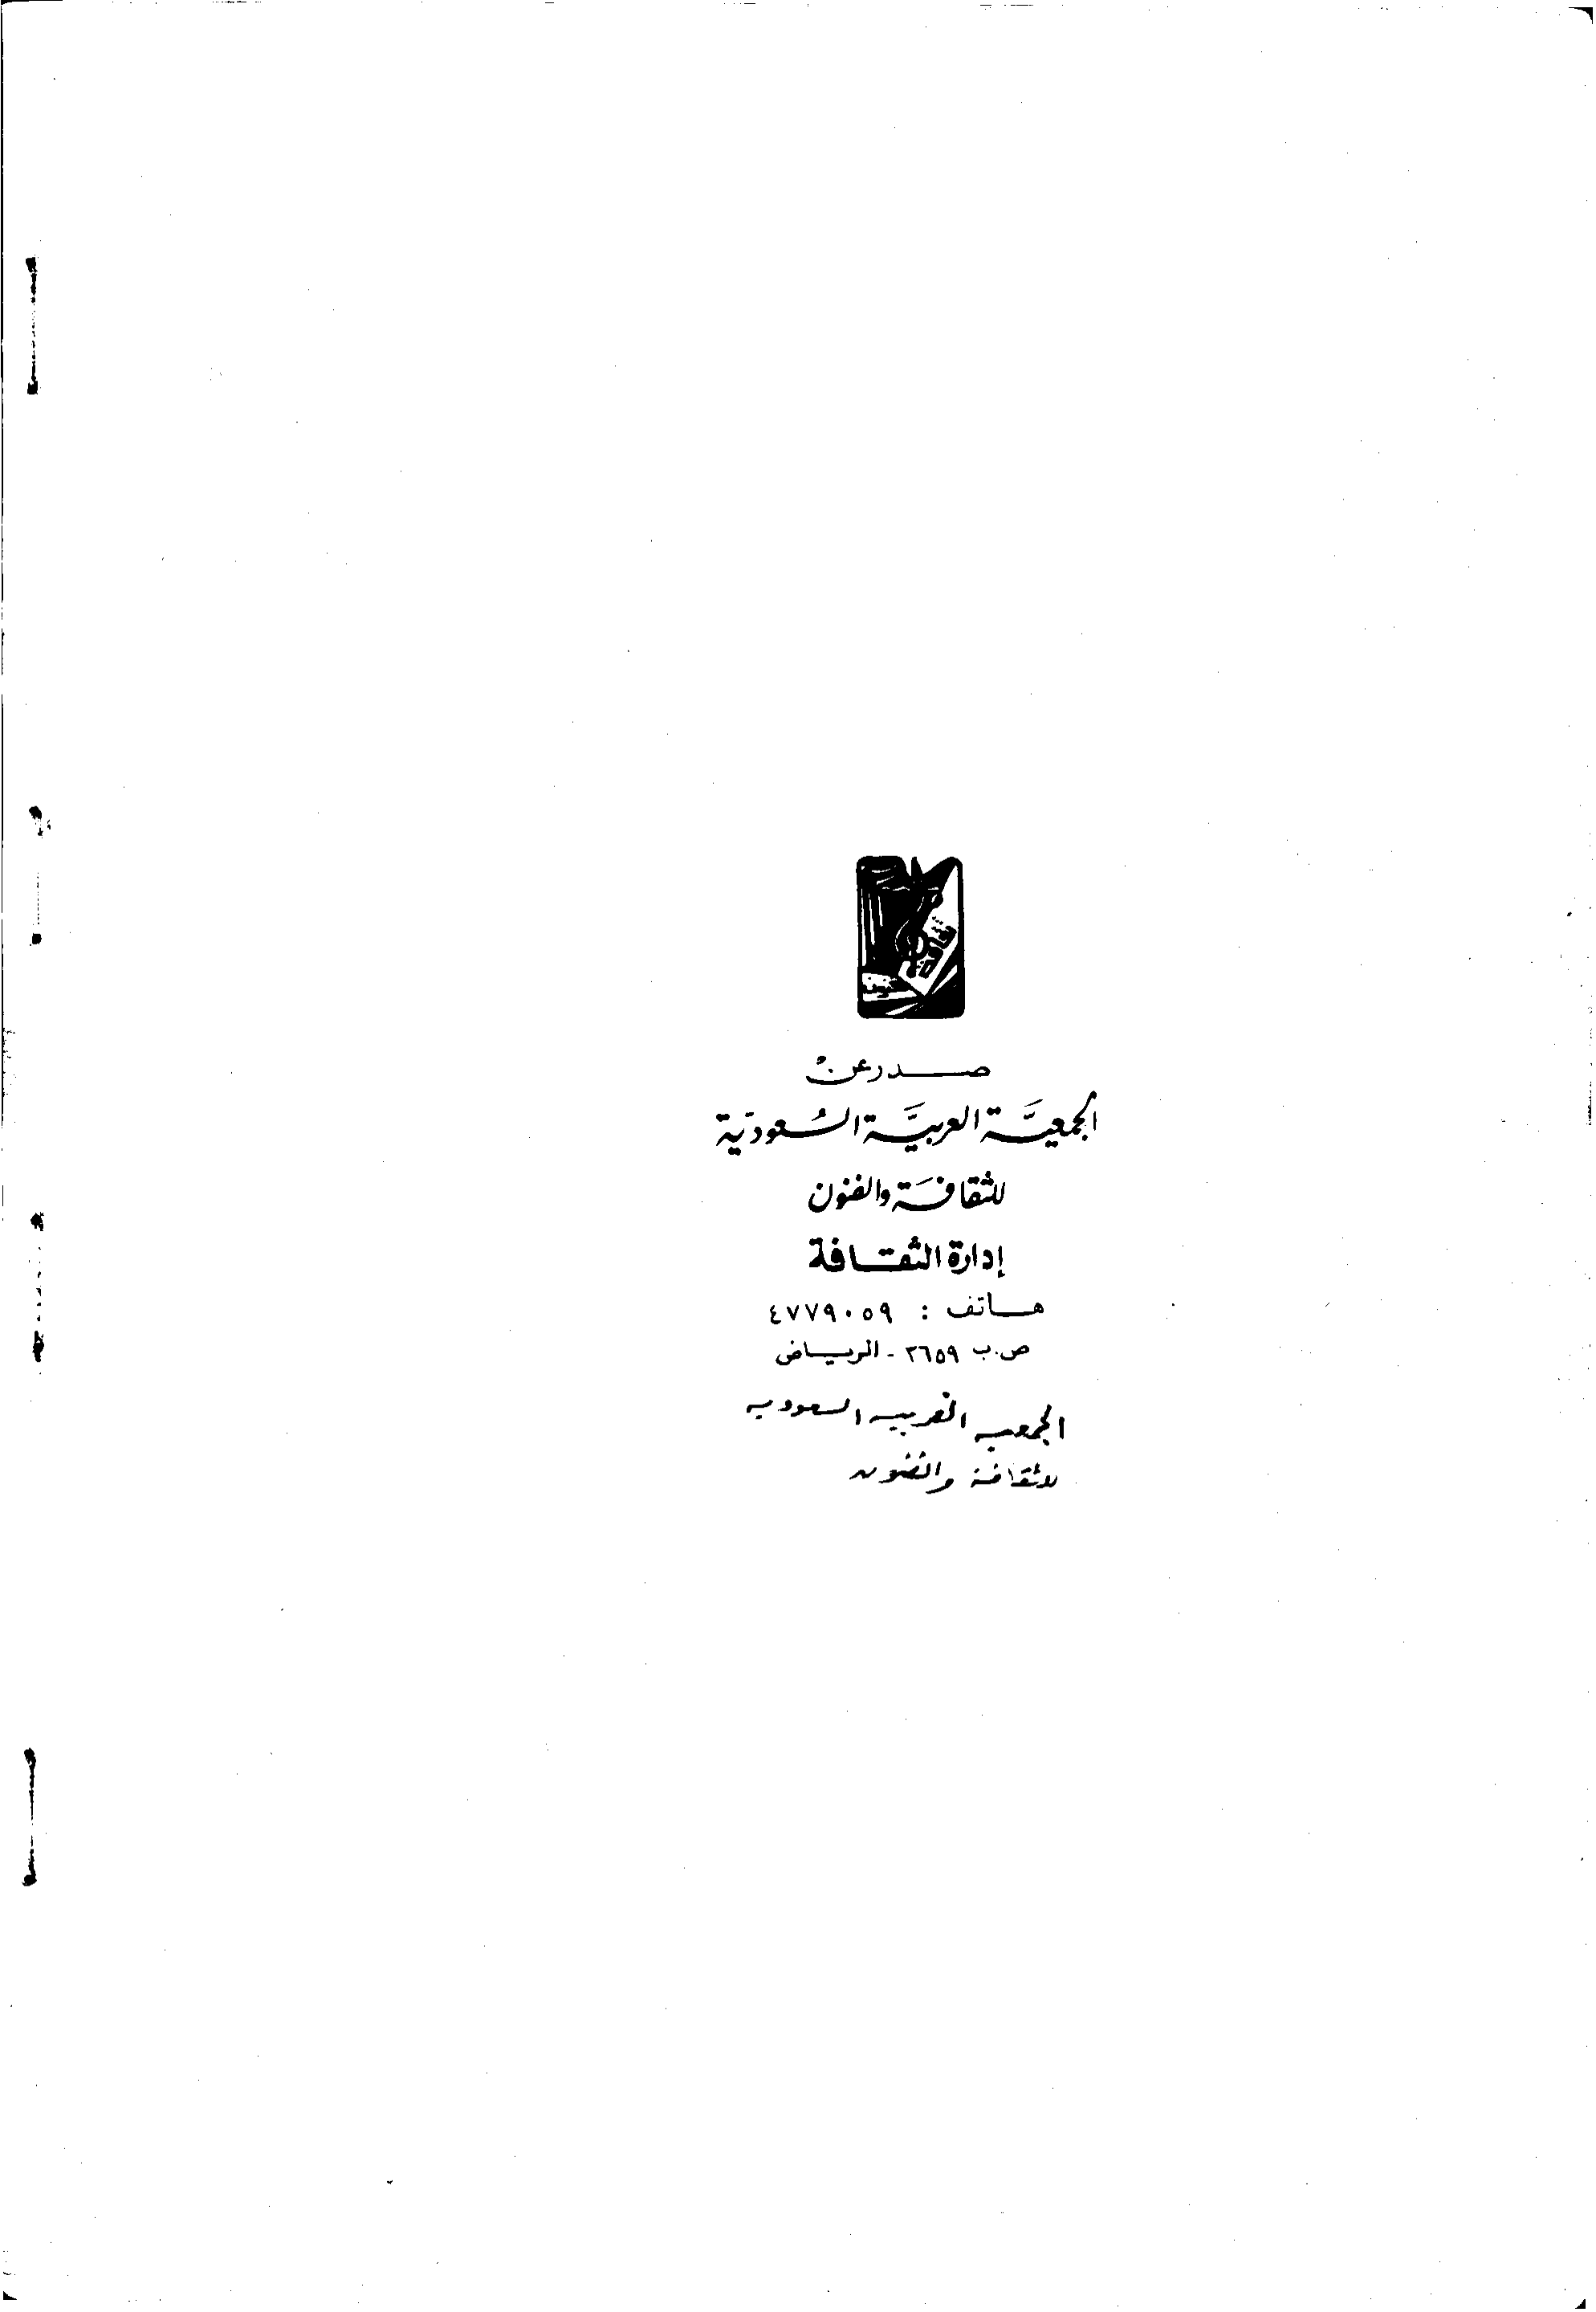 ثقافة
صدر عن
الجمعيَّة العربيَّة السُعودية
للثقافَة والفنون
إدارة الثقافة
هاتف : ٤٧٧٩٠٥٩
ص.ب ٢٦٥٩ - الرياض
الجمعية العربية السعودية
للثقافة والفنون